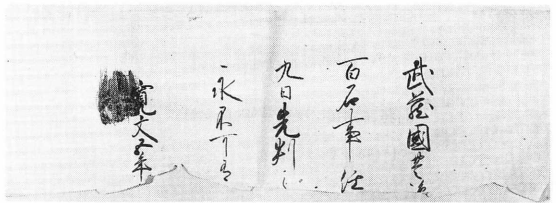 武蔵國
百石事任
九日先判
永不可有
寛文五年